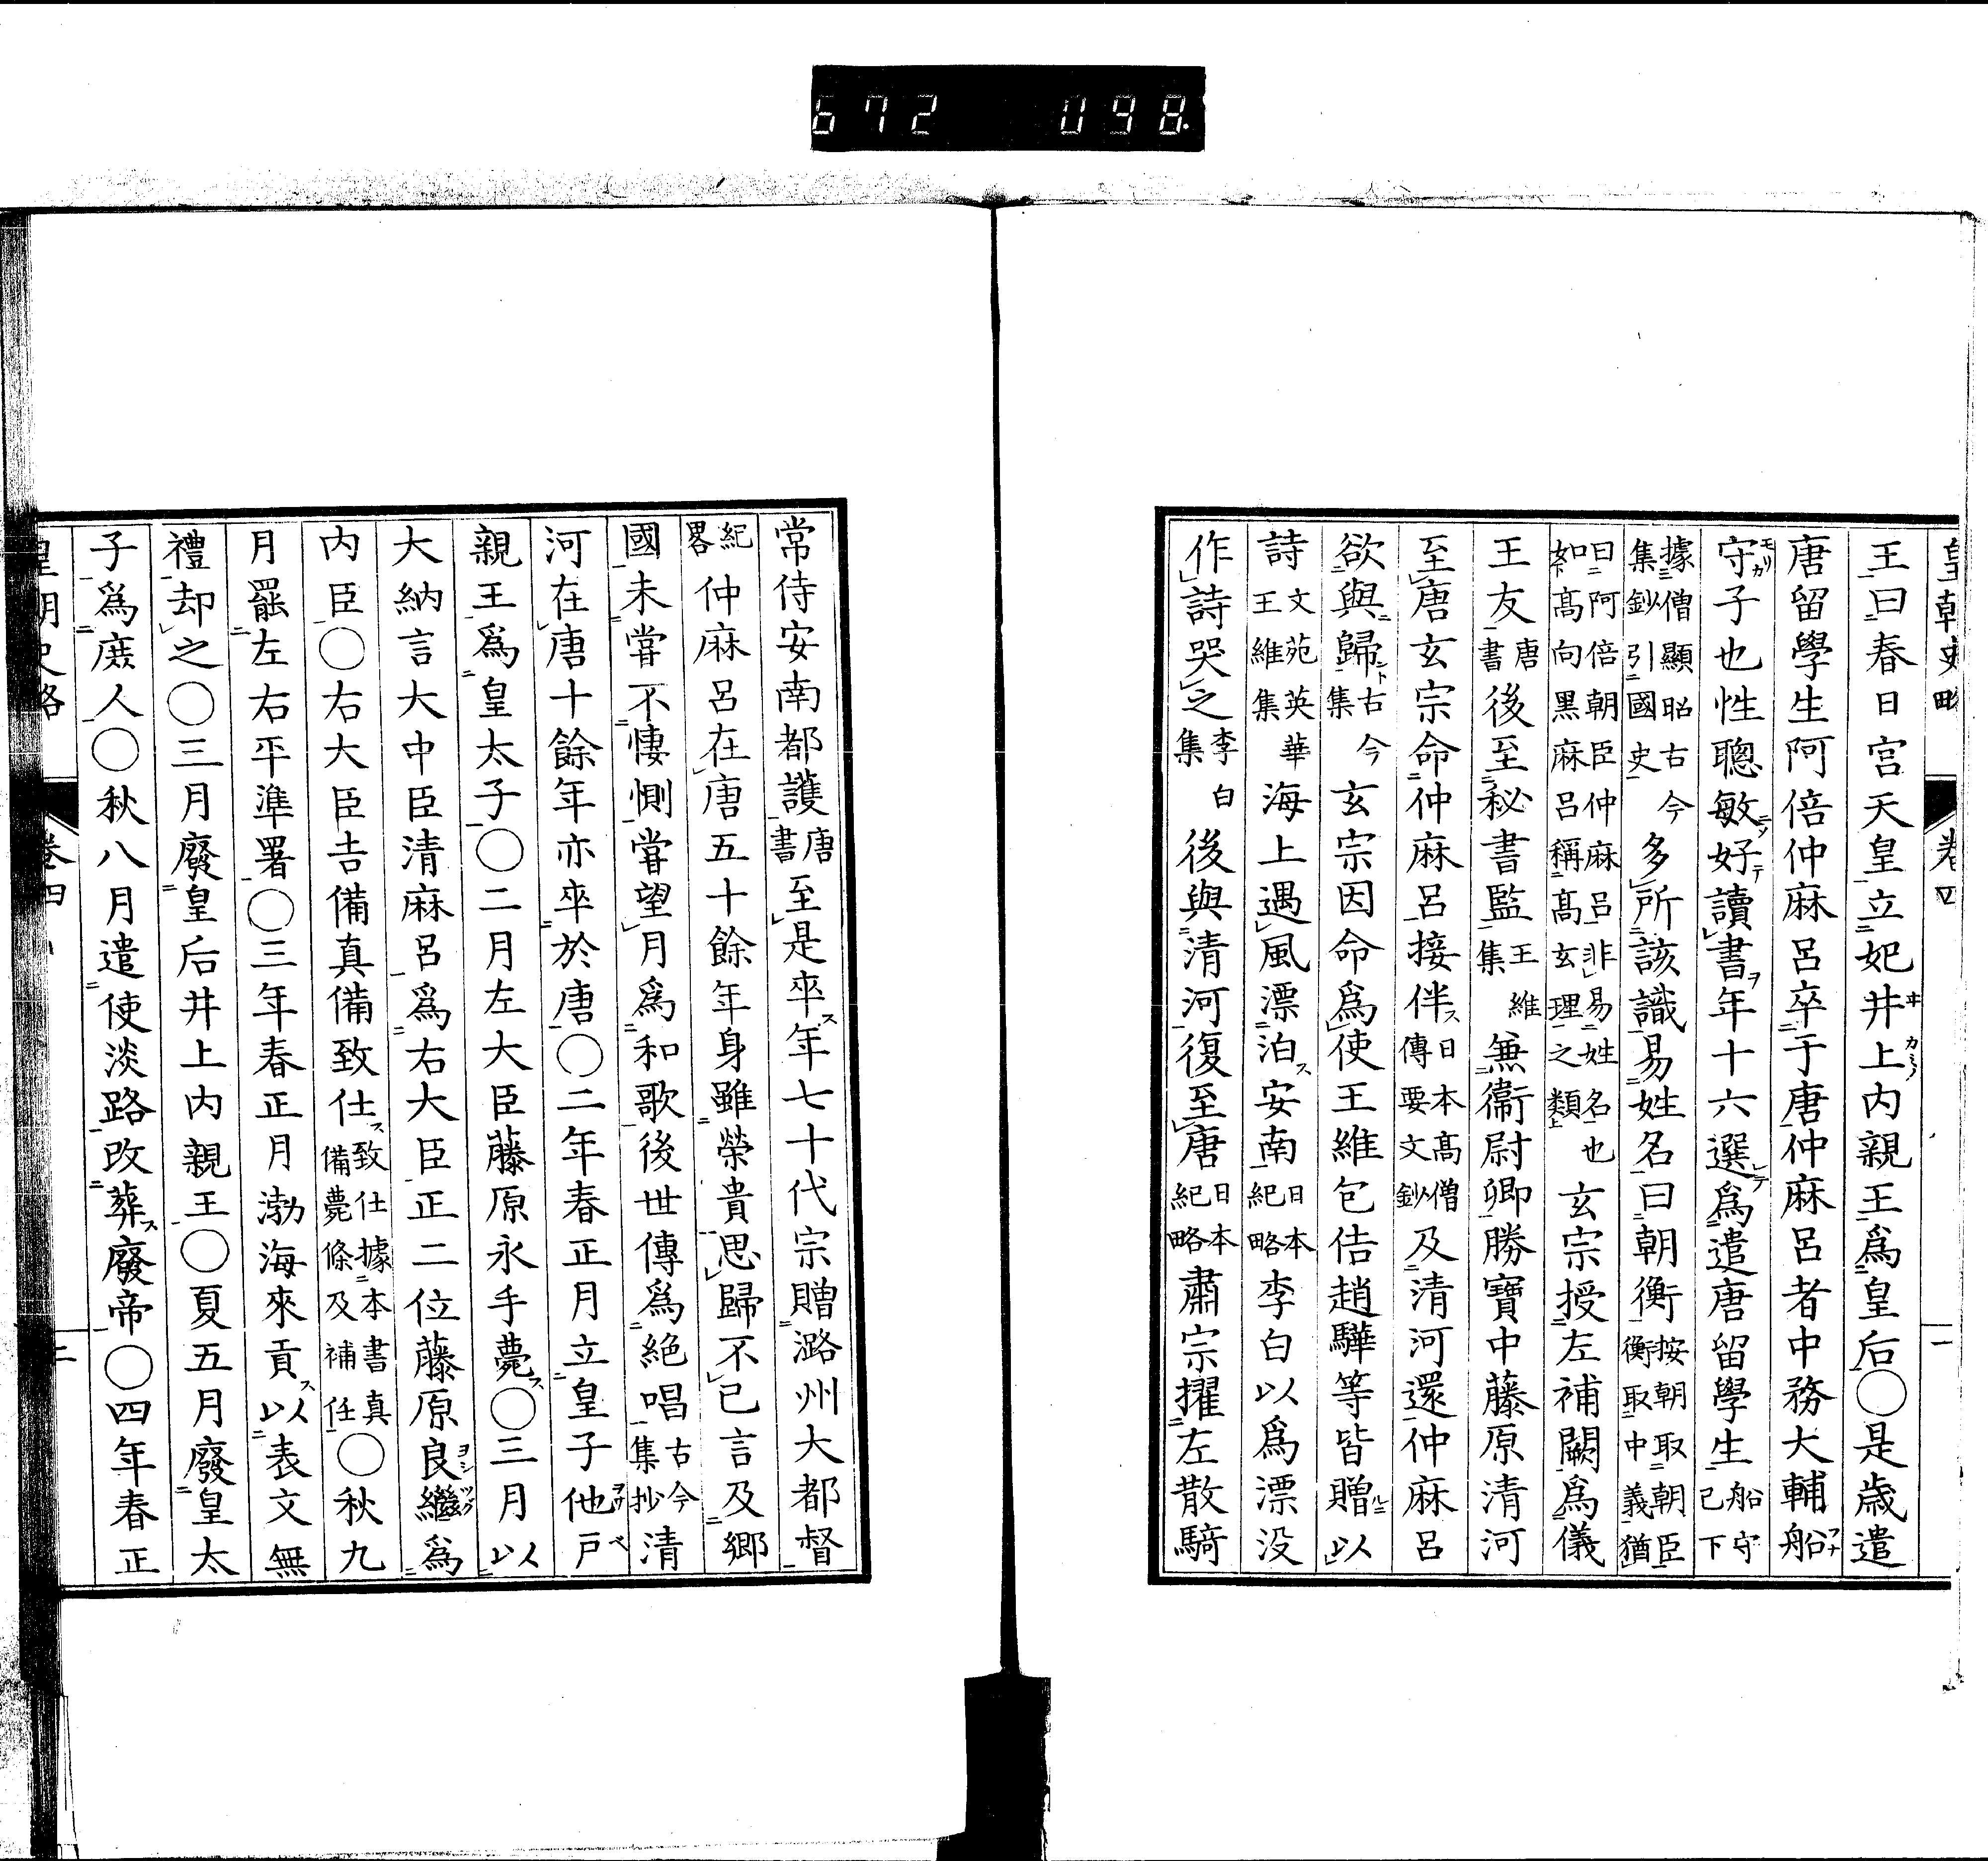 672 098
皇朝史略 卷四 一
王曰春日宮天皇立妃井上內親王爲皇后〇是歲遣
唐留學生阿倍仲麻呂卒于唐仲麻呂者中務大輔船
守子也性聰敏好讀書年十六選爲遣唐留學生船守已下
據僧顯昭古今集鈔引國史多所該識易姓名曰朝衡按朝取朝臣衡取中義猶
曰阿倍朝臣仲麻呂非易姓名也如高向黑麻呂稱高玄理之類玄宗授左補闕爲儀
王友唐書後至秘書監王維集兼衞尉卿勝寶中藤原清河
至唐玄宗命仲麻呂接伴日本高僧傳要文鈔及清河還仲麻呂
欲與歸古今集玄宗因命爲使王維包佶趙驊等皆贈以
詩文苑英華王維集海上遇風漂泊安南日本紀略李白以爲漂沒
作詩哭之李白集後與清河復至唐日本紀略肅宗擢左散騎
常侍安南都護唐書至是卒年七十代宗贈潞州大都督
紀畧仲麻呂在唐五十餘年身雖榮貴思歸不已言及鄉
國未嘗不悽惻嘗望月爲和歌後世傳爲絕唱古今集抄清
河在唐十餘年亦卒於唐〇二年春正月立皇子他戶
親王爲皇太子〇二月左大臣藤原永手薨〇三月以
大納言大中臣清麻呂爲右大臣正二位藤原良繼爲
內臣〇右大臣吉備真備致仕致仕據本書真備薨條及補任〇秋九
月罷左右平準署〇三年春正月渤海來貢以表文無
禮却之〇三月廢皇后井上內親王〇夏五月廢皇太
子爲庶人〇秋八月遣使淡路改葬廢帝〇四年春正
皇朝史略 卷四 二